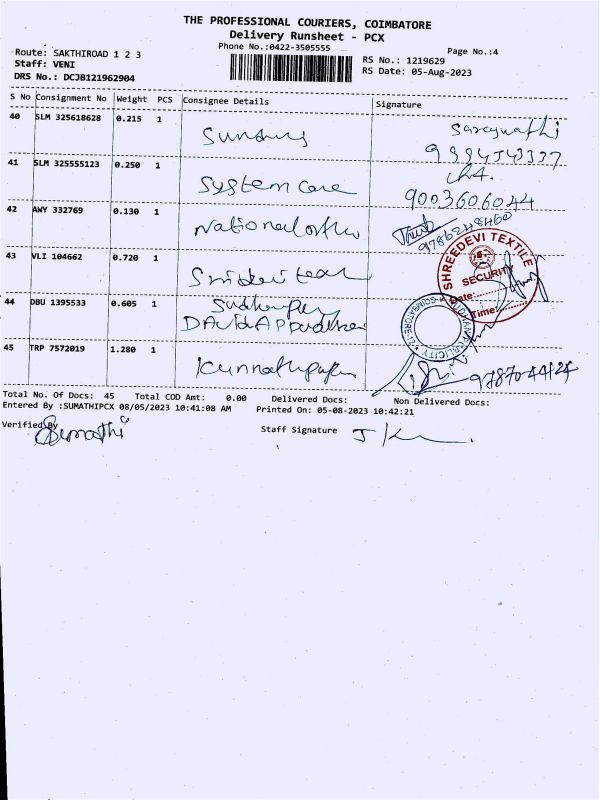 THE PROFESSIONAL COURIERS, COIMBATORE
Delivery Runsheet - PCX
Phone No.:0422-3505555
Page No.:4
Route: SAKTHIROAD 1 2 3
Staff: VENI
DRS No.: DCJB121962904
RS No.: 1219629
RS Date: 05-Aug-2023
S No Consignment No Weight PCS Consignee Details Signature
40 SLM 325618628 0.215 1
9994543337
41 SLM 325555123 0.250 1 System care
9003606044
42 AWY 332769 0.130 1 National
9786248460
43 VLI 104662 0.720 1
SHREEDEVI TEXTILE
SECURITY
Date:
Time:
44 DBU 1395533 0.605 1
COIMBATORE
45 TRP 7572019 1.280 1
9787044424
Total No. Of Docs: 45 Total COD Amt: 0.00 Delivered Docs: Non Delivered Docs:
Entered By :SUMATHIPCX 08/05/2023 10:41:08 AM Printed On: 05-08-2023 10:42:21
Verified By Sumathi Staff Signature